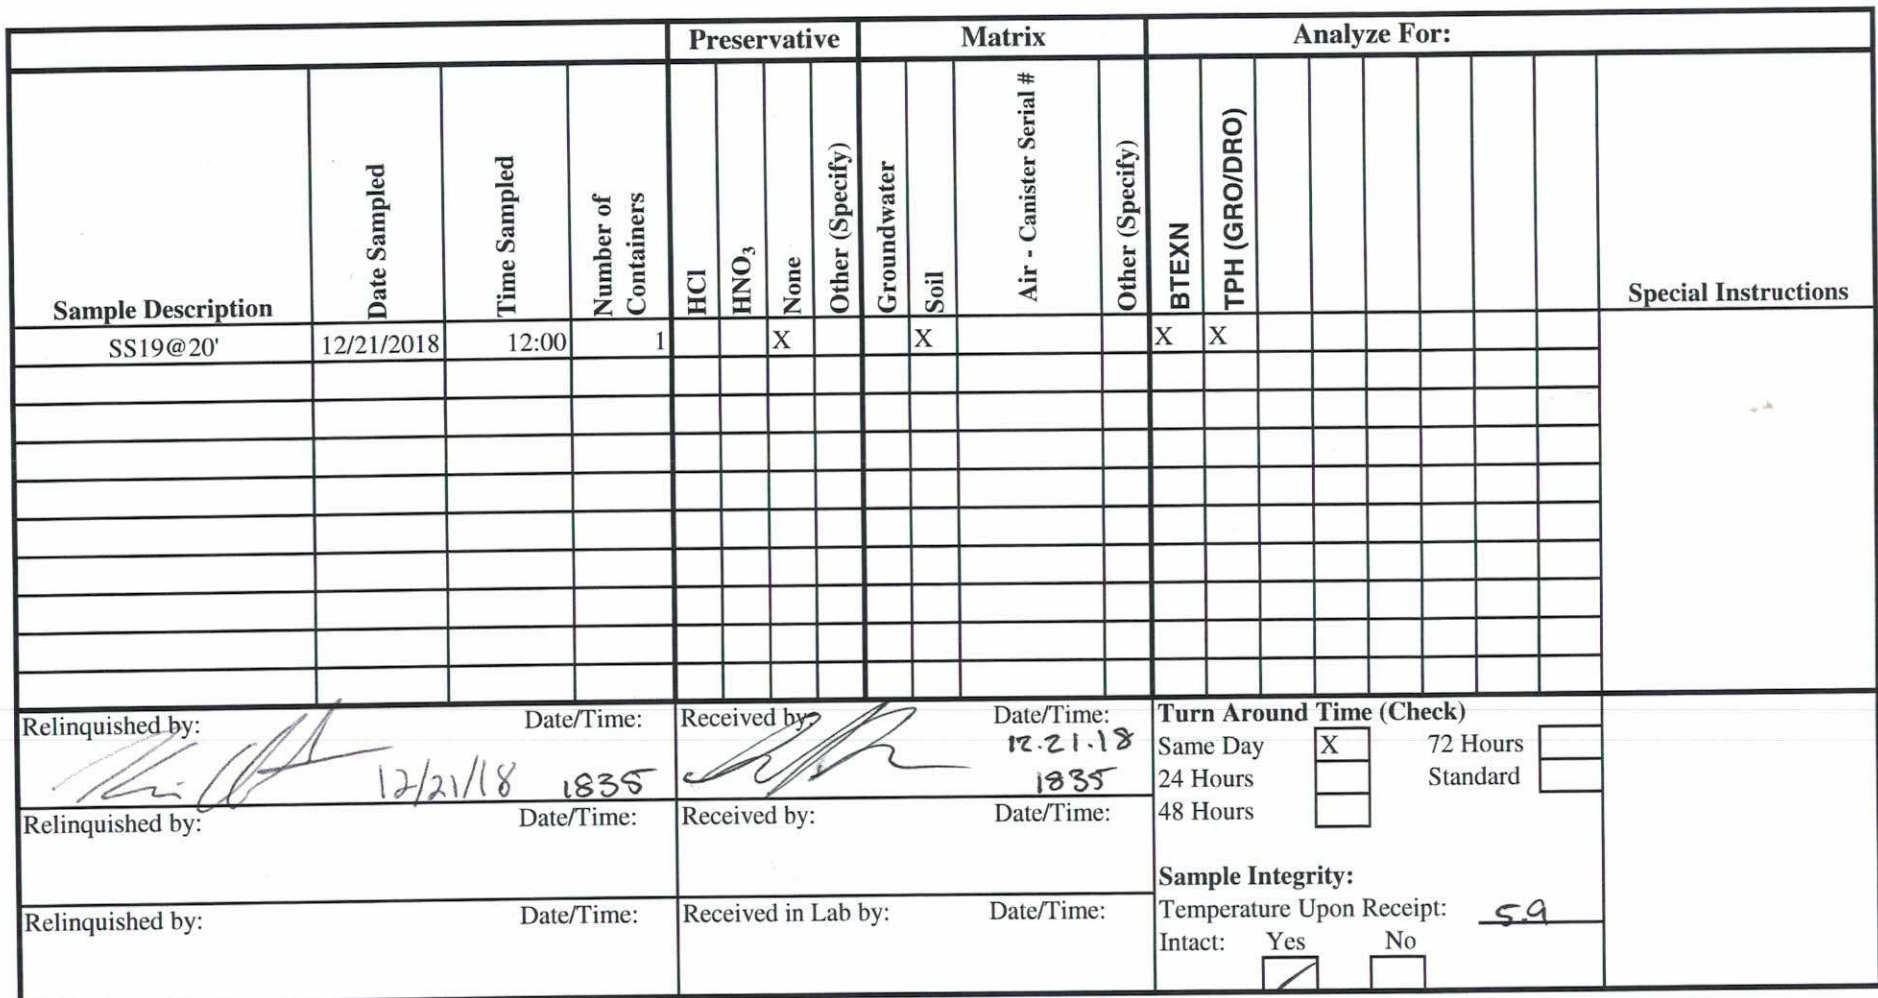 Preservative Matrix Analyze For:
Sample Description Date Sampled Time Sampled Number of Containers HCl HNO₃ None Other (Specify) Groundwater Soil Air - Canister Serial # Other (Specify) BTEXN TPH (GRO/DRO) Special Instructions
SS19@20' 12/21/2018 12:00 1 X X X X
Relinquished by: Date/Time: 12/21/18 1835
Received by: Date/Time: 12.21.18 1835
Relinquished by: Date/Time:
Received by: Date/Time:
Relinquished by: Date/Time:
Received in Lab by: Date/Time:
Turn Around Time (Check)
Same Day X 72 Hours
24 Hours Standard
48 Hours
Sample Integrity:
Temperature Upon Receipt: 5.9
Intact: Yes No